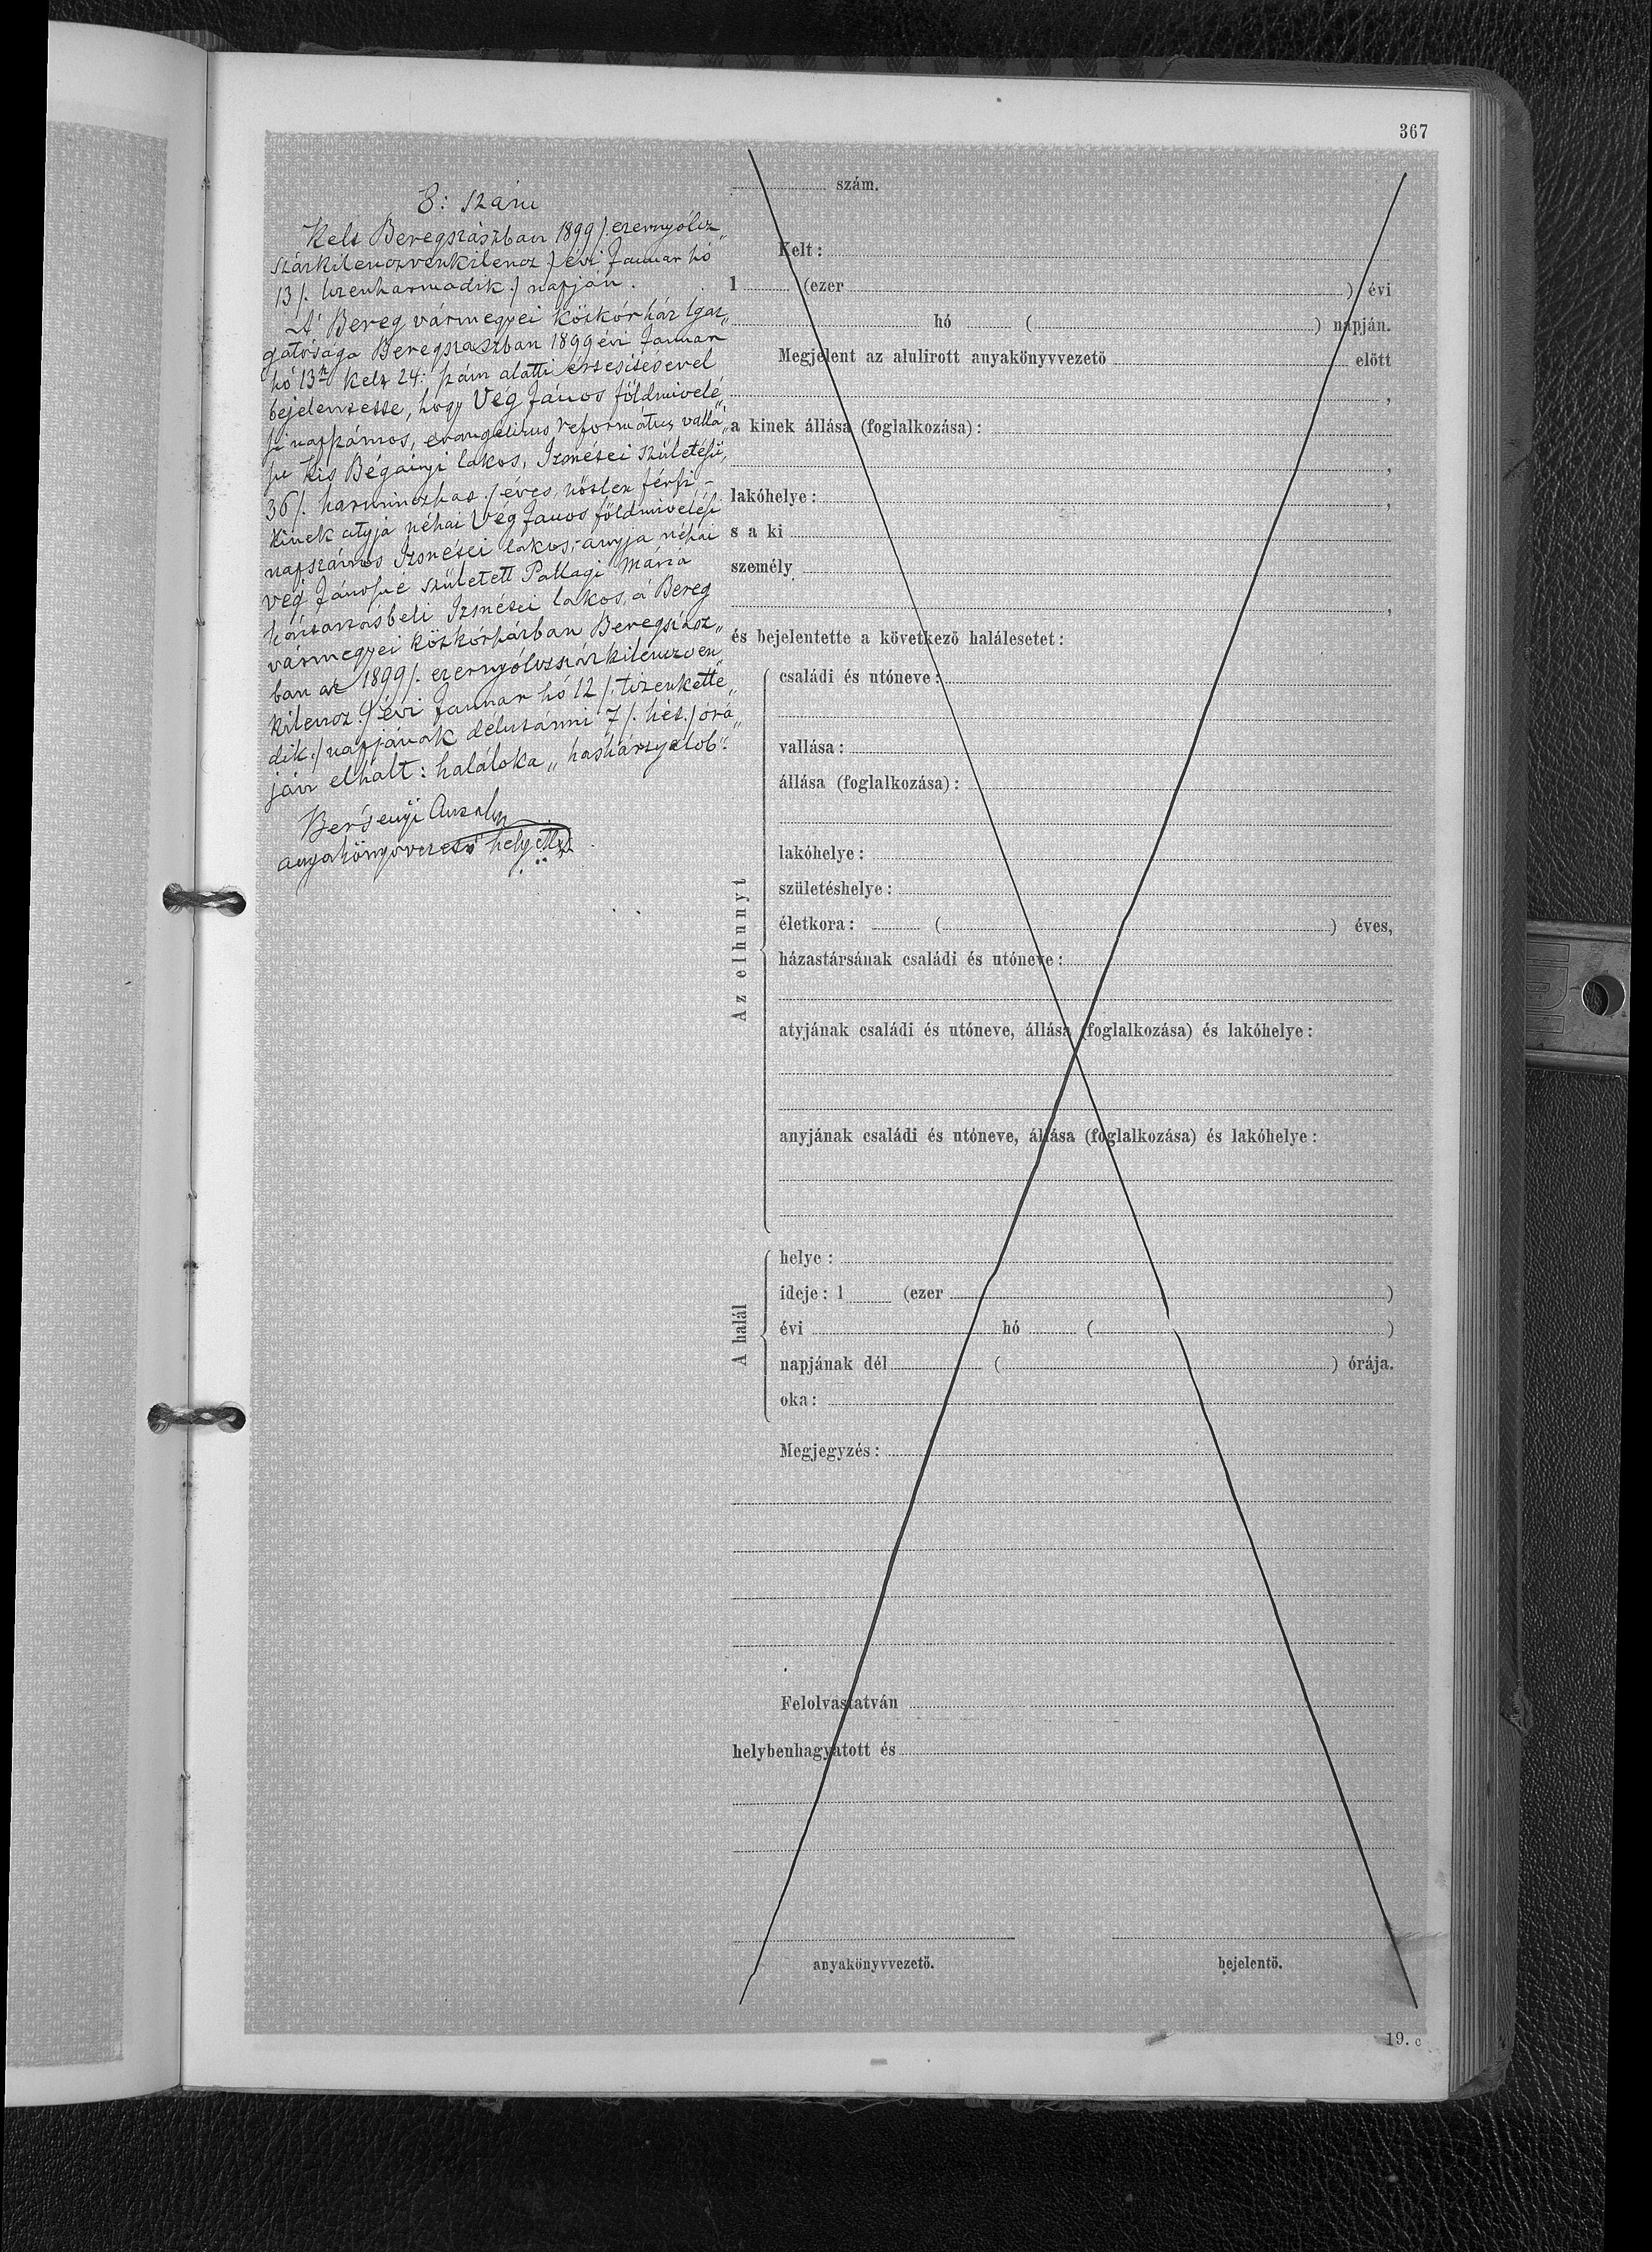 367
8: szám
Kelt Beregszászban 1899 /. ezernyolcz„
százkilenczvenkilencz ./ évi Januar hó
13 /. tizenharmadik ./ napján.
A' Bereg vármegyei közkórház Igaz„
gatósága Beregszaszban 1899 évi Januar
hó 13n kelt 24: szám alatti értesitésével
bejelentette, hogy Vég János földmivelé„
si napszámos, evangelicus református vallá„
su Kis Bégányi lakos, Izsnétei születésü,
36 /. harminczhat ./ éves, nőtlen férfi -
kinek atyja néhai Vég Janos földmivelési
napszámos Izsnétei lakos, - anyja néhai
Vég Jánosné született Pallagi Mária
háztartásbeli Izsnétei lakos, a Bereg
vármegyei közkórházban Beregszász„
ban az 1899 /. ezernyólczszázkilenczven„
kilencz ./ évi Januar hó 12 /. tizenkette„
dik ./ napjának délutanni 7 /. hét ./ órá„
ján elhalt: haláloka „hashártyalob".
Bersenyi
anyakönyvvezető helyettes
szám.
Kelt:
1 (ezer ) évi
hó ( ) napján.
Megjelent az alulirott anyakönyvvezető előtt
,
a kinek állása (foglalkozása):
,
lakóhelye: ,
s a ki
személy
,
és bejelentette a következő halálesetet:
Az elhunyt
családi és utóneve:
vallása:
állása (foglalkozása):
lakóhelye:
születéshelye:
életkora: ( ) éves,
házastársának családi és utóneve:
atyjának családi és utóneve, állása (foglalkozása) és lakóhelye:
anyjának családi és utóneve, állása (foglalkozása) és lakóhelye:
A halál
helye:
ideje: 1 (ezer )
évi hó ( )
napjának dél ( ) órája.
oka:
Megjegyzés:
Felolvastatván
helybenhagyatott és
anyakönyvvezető.
bejelentő.
19. c